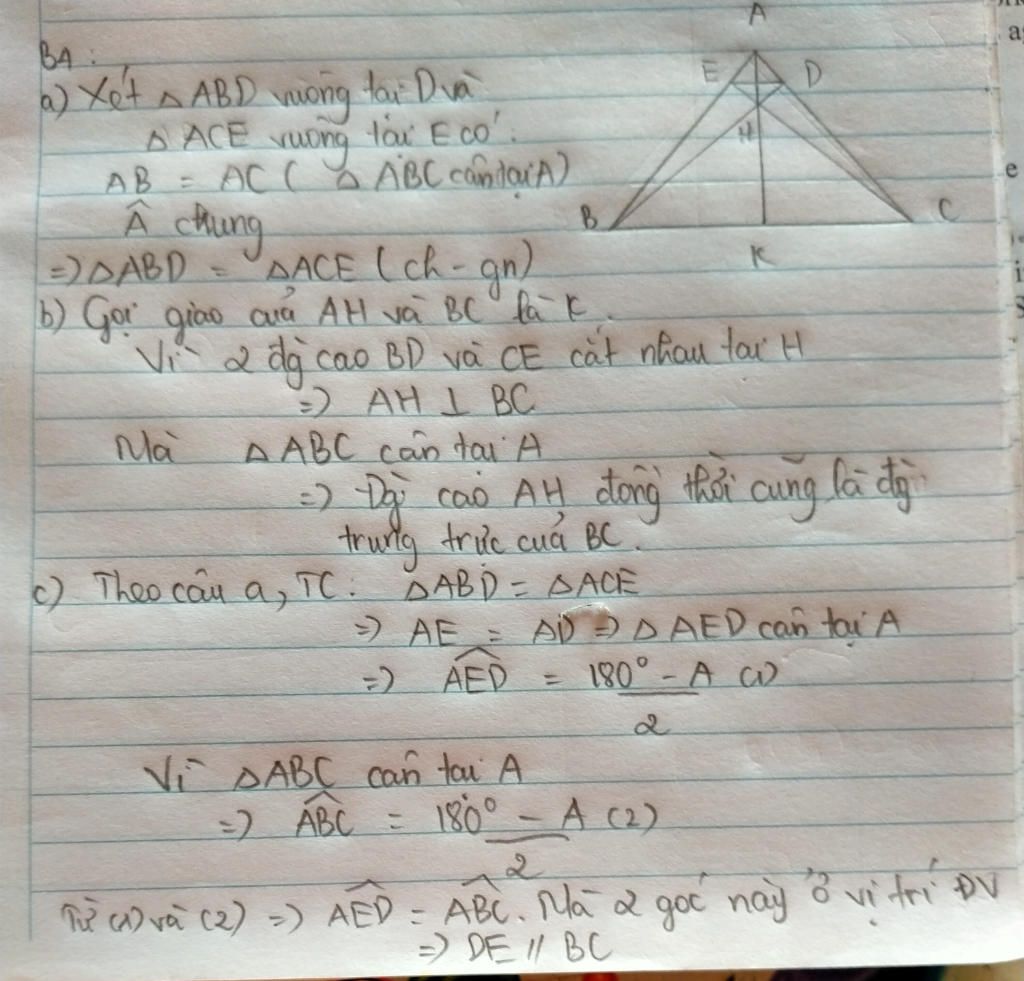 B4:
a) Xét △ABD vuông tại D và
△ACE vuông tại E có:
AB = AC ( △ABC cân tại A)
Â chung
=> △ABD = △ACE (ch - gn)
b) Gọi giao của AH và BC là K.
Vì 2 đg cao BD và CE cắt nhau tại H
=> AH ⊥ BC
Mà △ABC cân tại A
=> Đg cao AH đồng thời cũng là đg
trung trực của BC.
c) Theo câu a, TC: △ABD = △ACE
=> AE = AD => △AED cân tại A
=> \widehat{AED} = \frac{180° - A}{2} (1)
Vì △ABC cân tại A
=> \widehat{ABC} = \frac{180° - A}{2} (2)
Từ (1) và (2) => \widehat{AED} = \widehat{ABC}. Mà 2 góc này ở vị trí ĐV
=> DE // BC
A
E D
H
B C
K
a
e
i